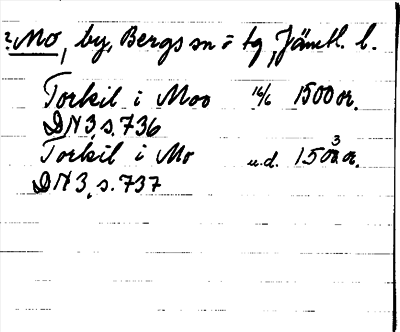 ?Mo, by, Bergs sn o tg, Jämtl. l.
Torkil i Moo 16/6 1500 or.
DN3, s. 736
Torkil i Mo u.d. 1503 or.
DN3, s. 737